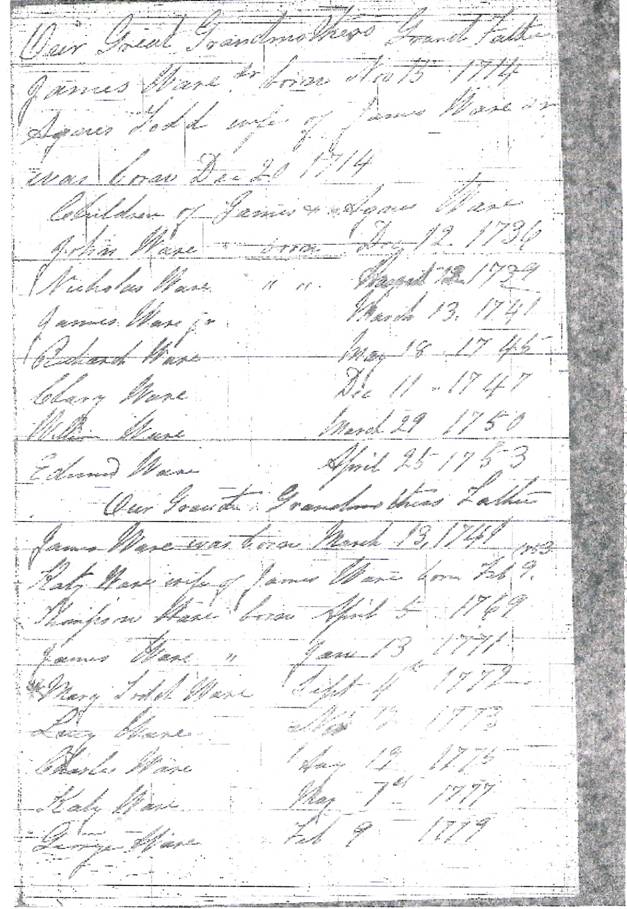 Our Great Grandmothers Grand Father
James Ware Sr born Nov 15 1714
Agnes Todd wife of James Ware Sr
was born Dec 20 1714
Children of James & Agnes Ware
John Ware born Dec 12 1736
Nicholas Ware " " 1739
James Ware Jr March 13. 1741
Richard Ware May 18 1745
Clary Ware Dec 11 - 1747
William Ware March 29 1750
Edmund Ware April 25 1753
Our Grandmothers Father
James Ware was born March 13, 1741
Katy Ware wife of James Ware born Feb 9.
Thompson Ware born April 5 1769
James Ware " June 13 1771
Mary Todd Ware Sept 4th 1772
Lucy Ware 1773
Charles Ware 1775
Katy Ware May 7th 1777
George Ware Feb 9 1779